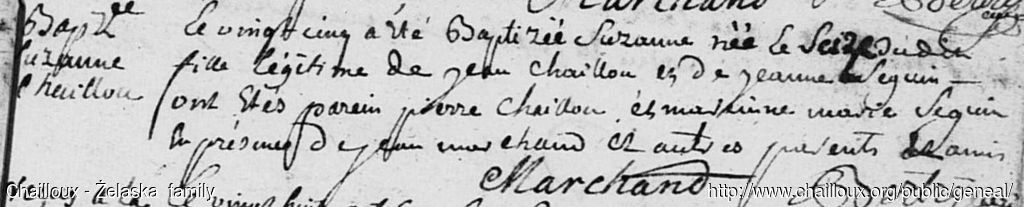 Marchand
Bapt.
Suzanne
Chaillou
Le vingt cinq a été Baptizéé Suzanne néé le Seize du dit
fille légitime de jean Chaillou et de jeanne Seguin
ont étés parein pierre Chaillou et marainne marie Seguin
En présence de jean marchand Et autres parents et amis
Marchand
Chailloux - Żelaska family
http://www.chailloux.org/public/geneal/